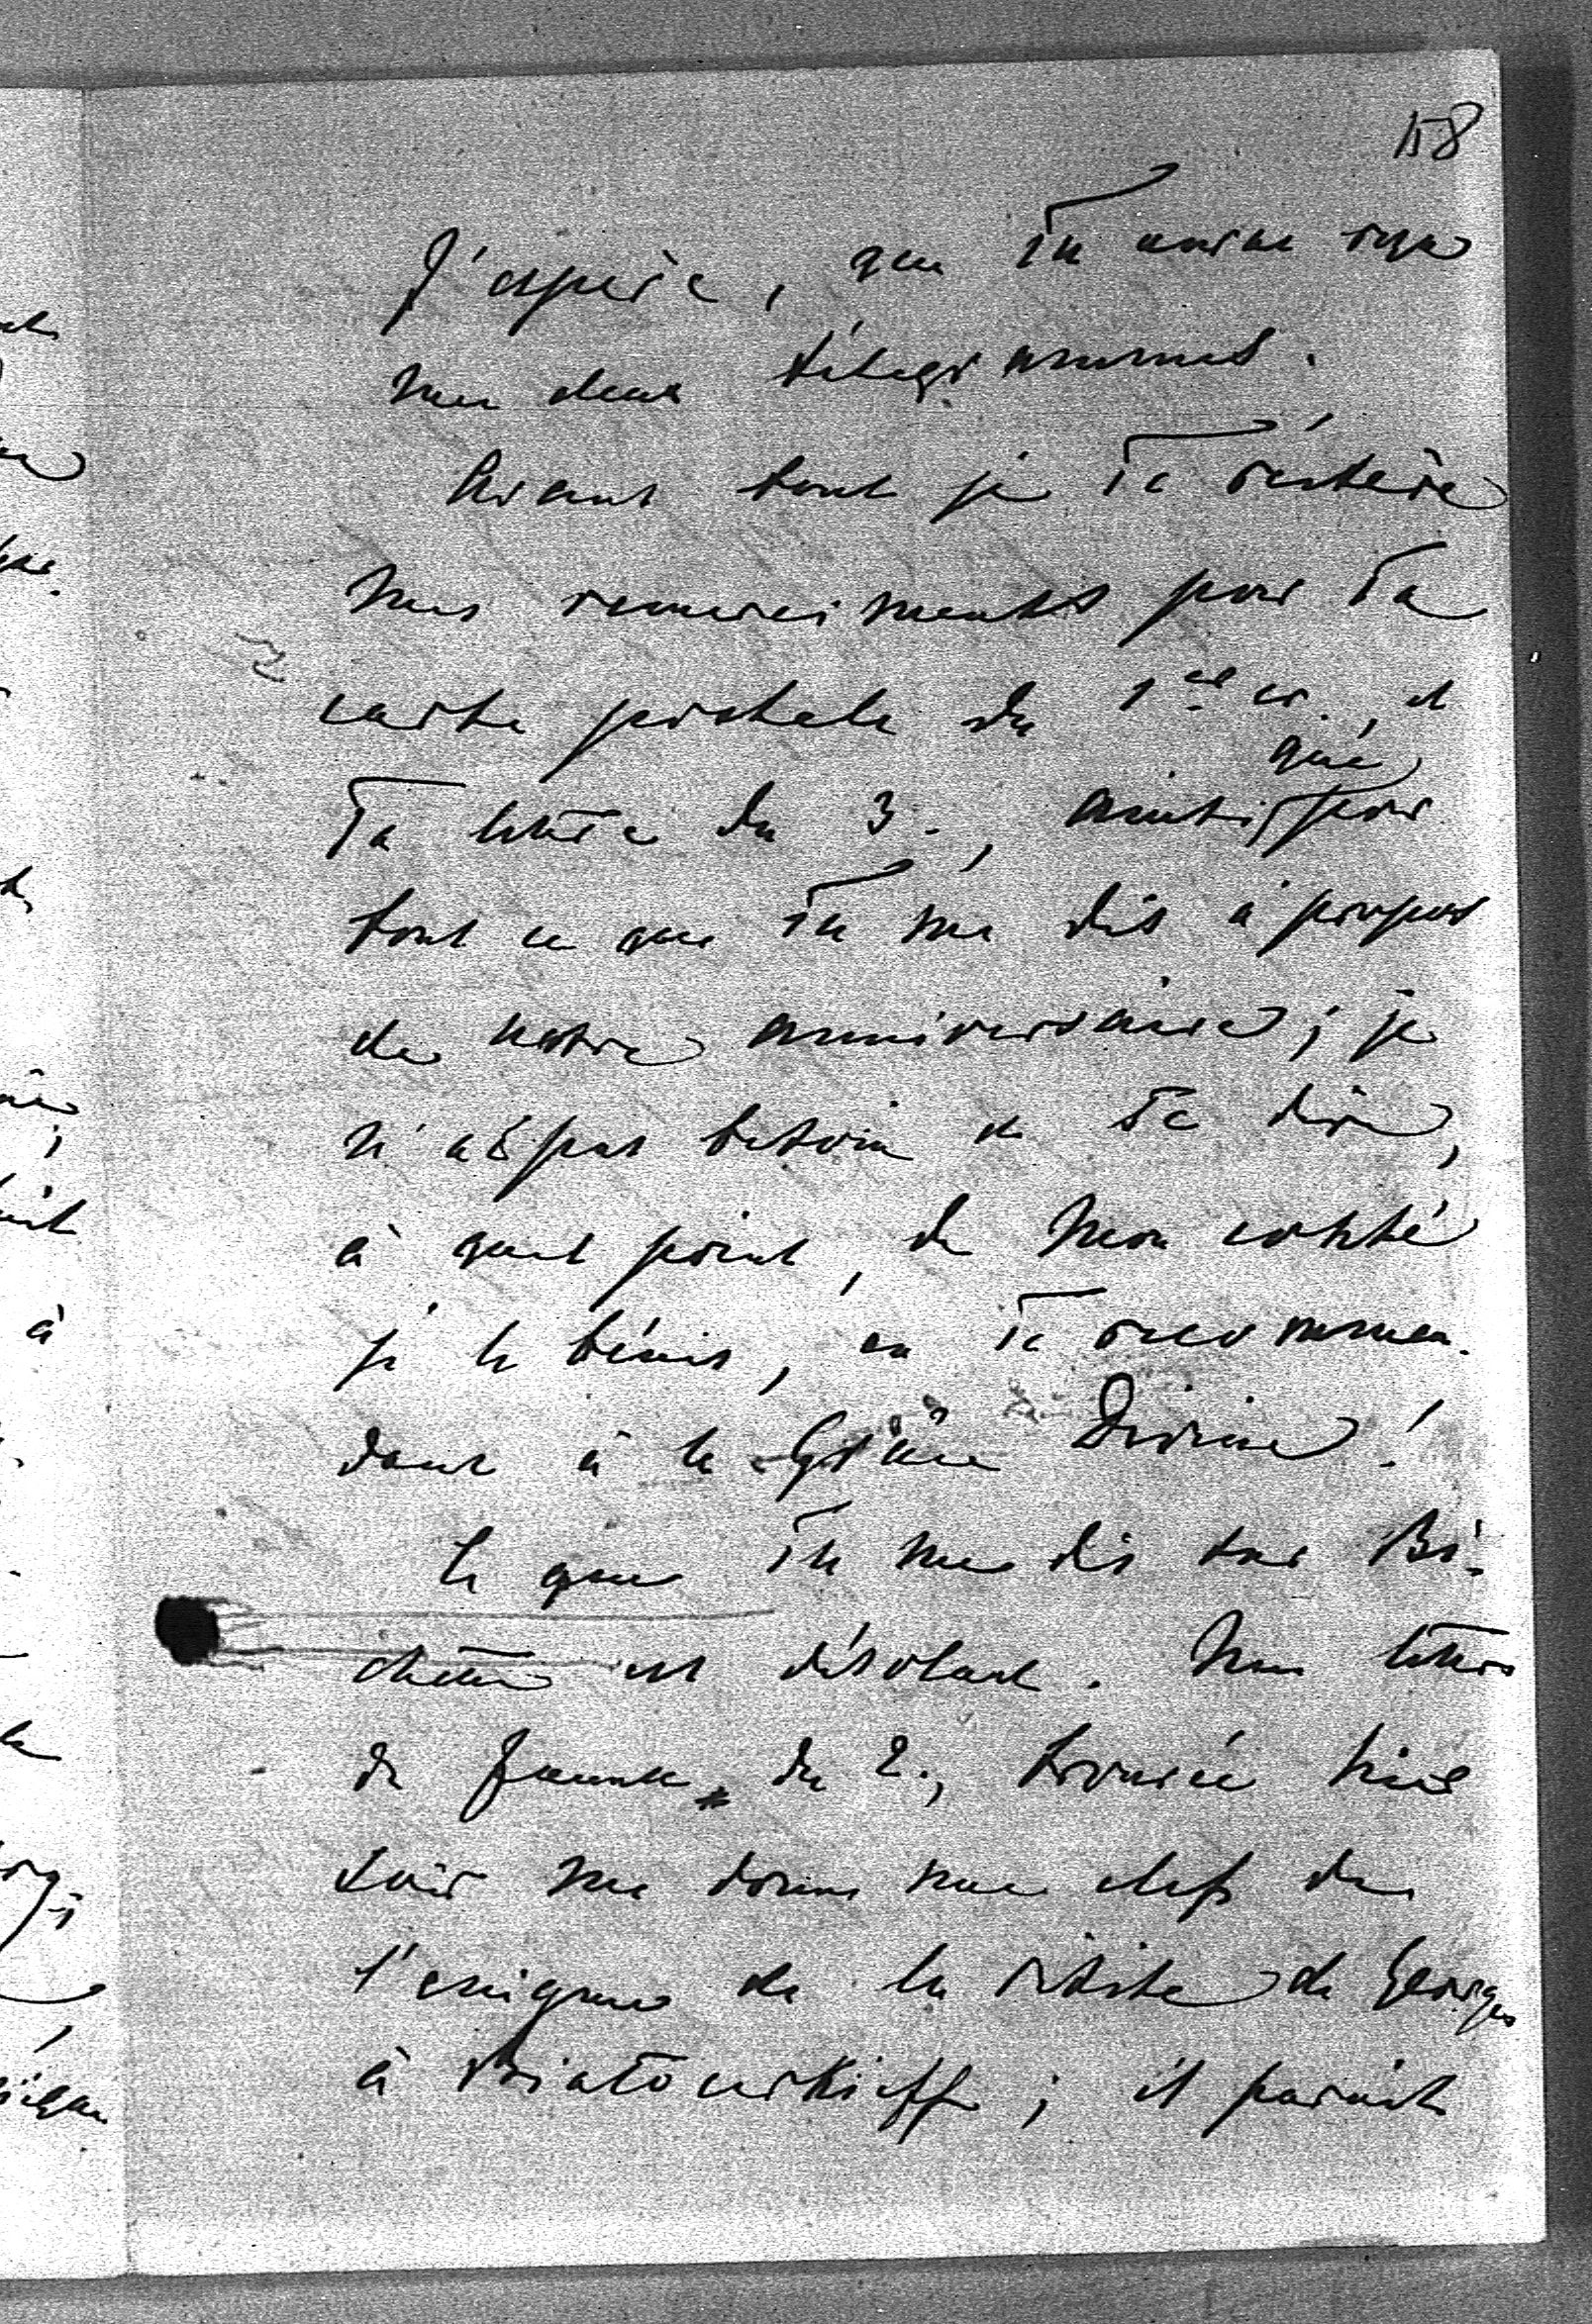 158
J'espère, que Tu auras reçu
mes deux télégrammes.
Avant tout je Te réitère
mes remerciments pour Ta
carte postale du 1er cr., et
Ta lettre du 3., ainsi que pour
tout ce que Tu me dis à propos
de notre anniversaire; je
n'ai pas besoin de Te dire,
à quel point, de mon costé
je le bénis, en Te recomman-
dant à la Grâce Divine!
Ce que Tu me dis sur Bi-
chette est désolant. Une lettre
de Jeanne, du 2., trouvée hier
soir me donne une clef de
l'enigme de la visite de Georges
à Bialocerkieff; il parait